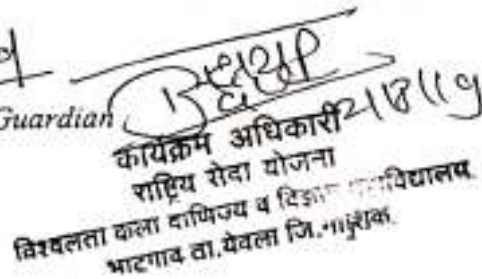 Guardian
21/8/19
कार्यक्रम अधिकारी
राष्ट्रिय सेवा योजना
विश्वलता कला वाणिज्य व विज्ञान महाविद्यालय
भाटगाव ता.येवला जि.नाशिक.